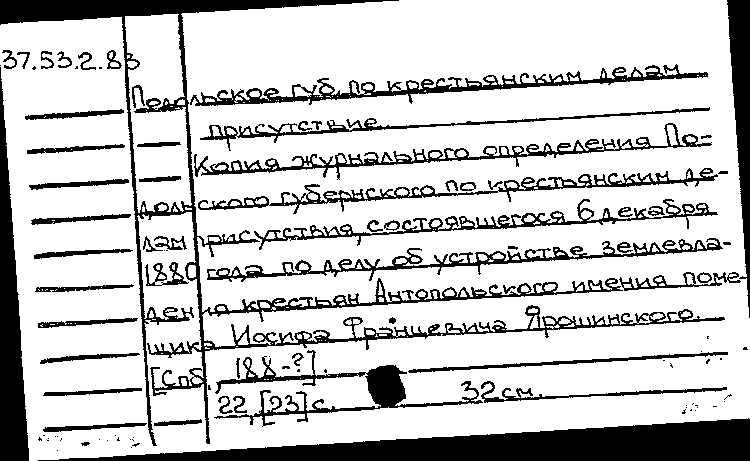 37.53.2.83
Подольское губ. по крестьянским делам
присутствие.
Копия журнального определения По-
дольского губернского по крестьянским де-
лам присутствия, состоявшегося 6 декабря
1880 года по делу об устройстве землевла-
дения крестьян Антопольского имения поме-
щика Иосифа Францевича Ярошинского.
[Спб., 188-?].
22, [23] с. 32 см.